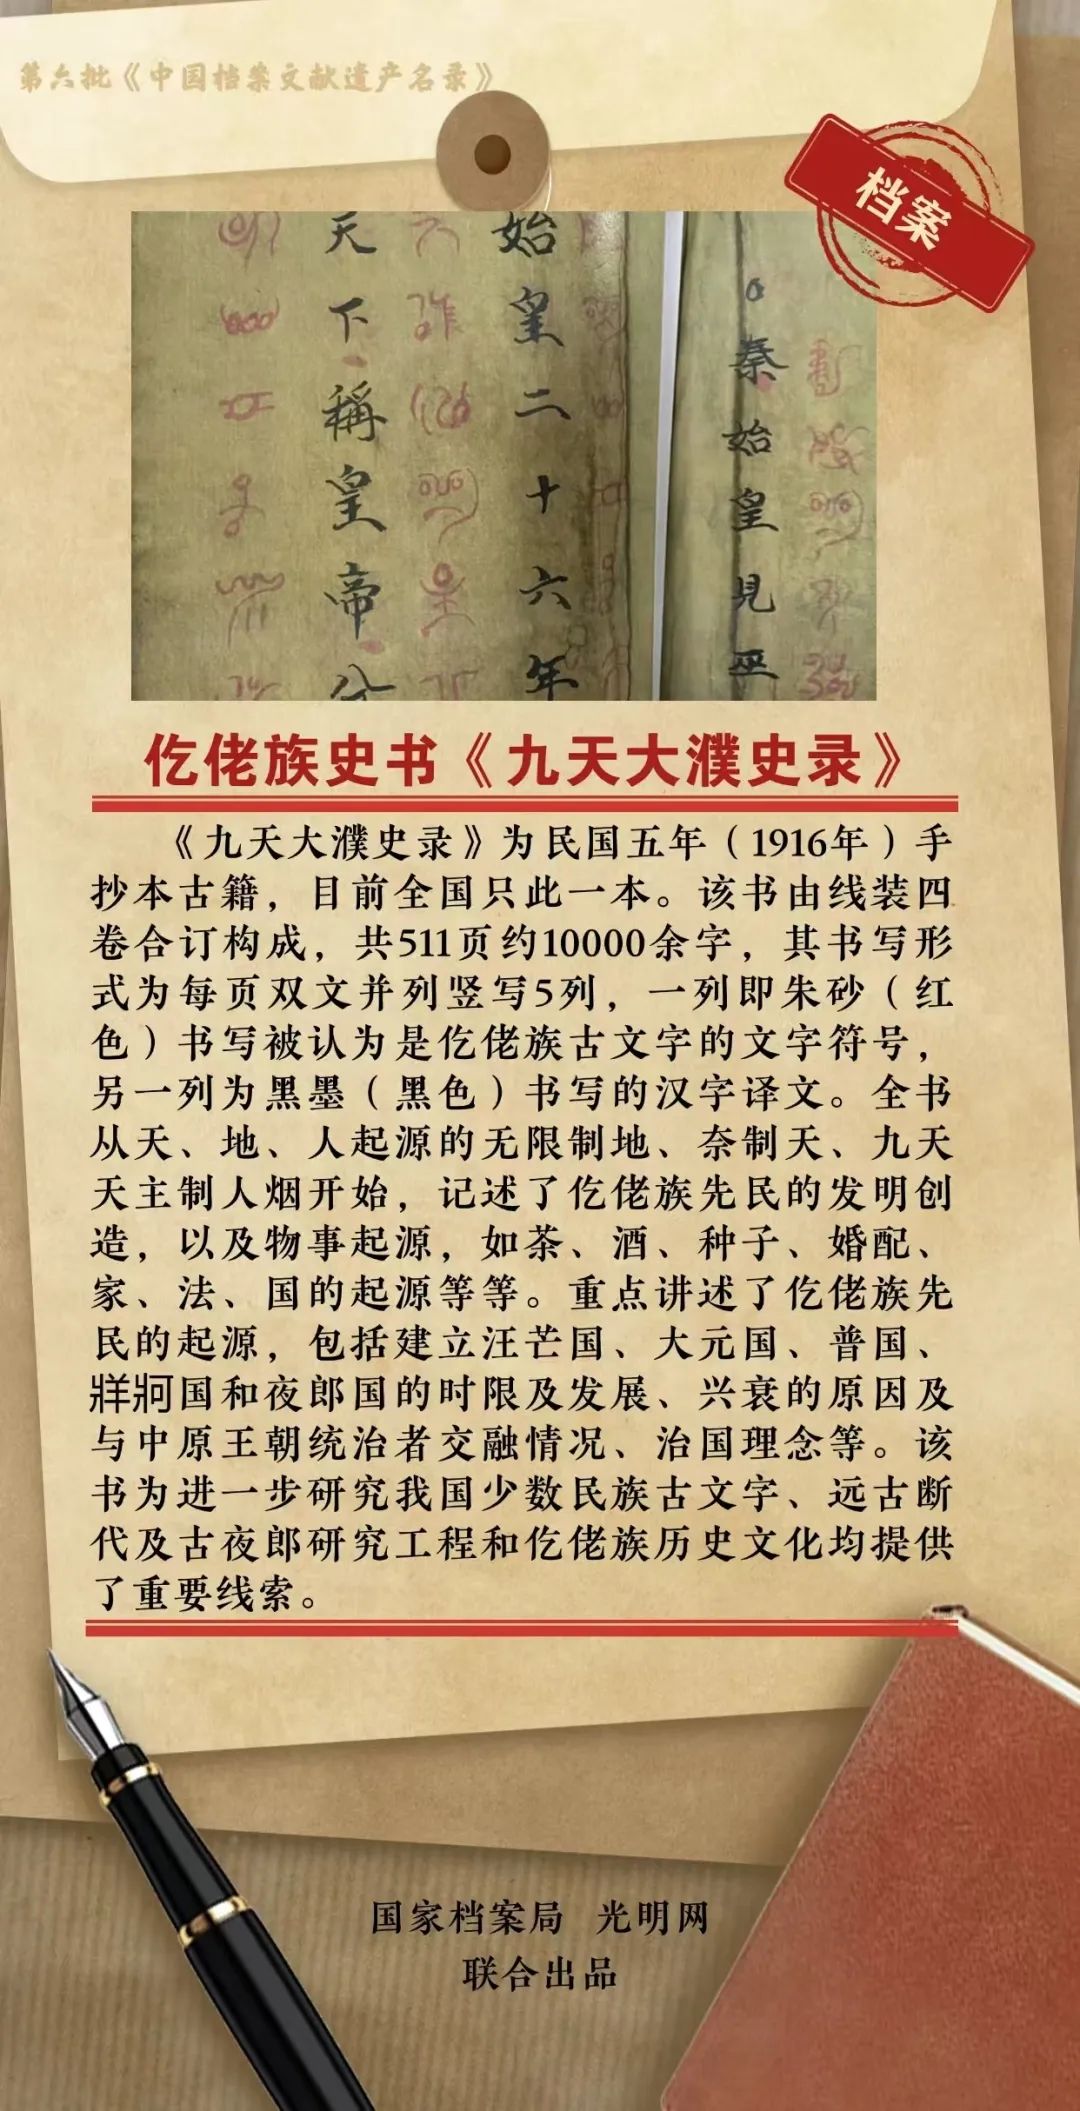 第六批《中国档案文献遗产名录》
档案
秦始皇見巫
始皇二十六年
天下稱皇帝分
仡佬族史书《九天大濮史录》
《九天大濮史录》为民国五年（1916年）手
抄本古籍，目前全国只此一本。该书由线装四
卷合订构成，共511页约10000余字，其书写形
式为每页双文并列竖写5列，一列即朱砂（红
色）书写被认为是仡佬族古文字的文字符号，
另一列为黑墨（黑色）书写的汉字译文。全书
从天、地、人起源的无限制地、奈制天、九天
天主制人烟开始，记述了仡佬族先民的发明创
造，以及物事起源，如茶、酒、种子、婚配、
家、法、国的起源等等。重点讲述了仡佬族先
民的起源，包括建立汪芒国、大元国、普国、
牂牁国和夜郎国的时限及发展、兴衰的原因及
与中原王朝统治者交融情况、治国理念等。该
书为进一步研究我国少数民族古文字、远古断
代及古夜郎研究工程和仡佬族历史文化均提供
了重要线索。
国家档案局 光明网
联合出品